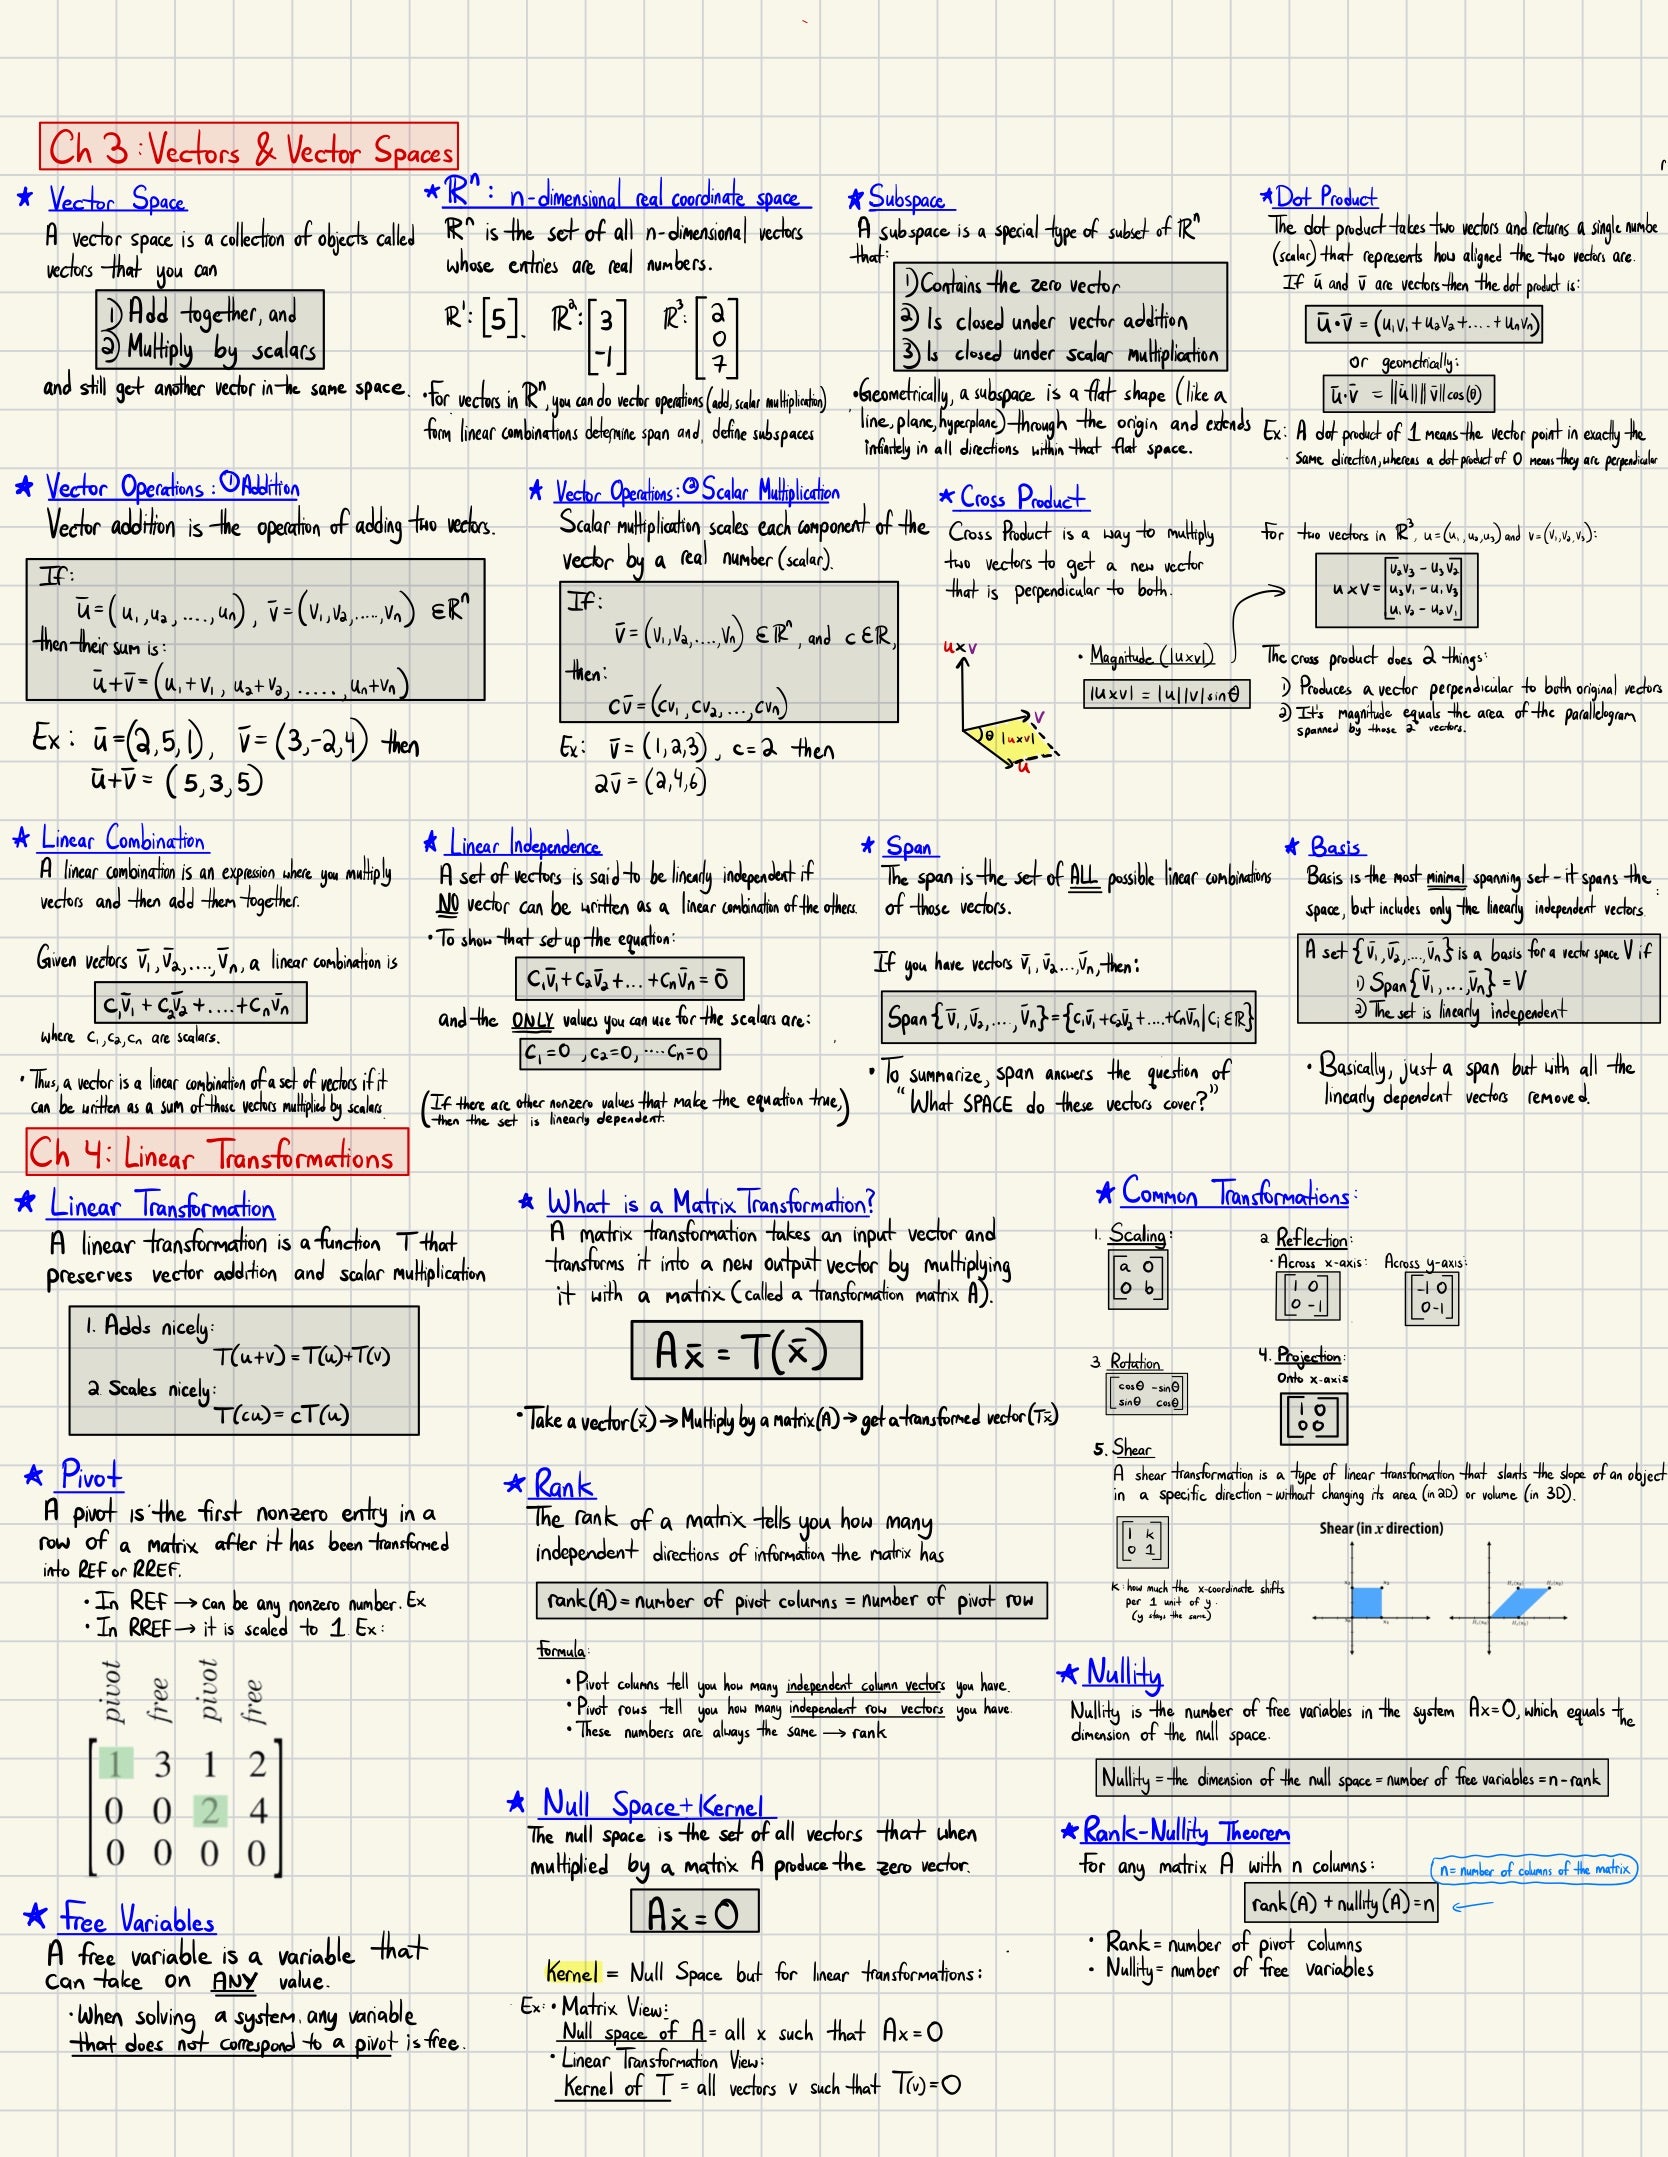 Ch 3: Vectors & Vector Spaces
★ Vector Space
A vector space is a collection of objects called
vectors that you can
1) Add together, and
2) Multiply by scalars
and still get another vector in the same space.
★ ℝⁿ: n-dimensional real coordinate space
ℝⁿ is the set of all n-dimensional vectors
whose entries are real numbers.
ℝ¹: [5]. ℝ²: [3 -1] ℝ³: [2 0 7]
• For vectors in ℝⁿ, you can do vector operations (add, scalar multiplication)
form linear combinations determine span and, define subspaces
★ Subspace
A subspace is a special type of subset of ℝⁿ
that:
1) Contains the zero vector
2) Is closed under vector addition
3) Is closed under scalar multiplication
• Geometrically, a subspace is a flat shape (like a
line, plane, hyperplane) through the origin and extends
infinitely in all directions within that flat space.
★ Dot Product
The dot product takes two vectors and returns a single numbe
(scalar) that represents how aligned the two vectors are.
If ū and v̄ are vectors then the dot product is:
ū·v̄ = (u₁v₁+u₂v₂+....+uₙvₙ)
or geometrically:
ū·v̄ = ||ū|| ||v̄|| cos(θ)
Ex: A dot product of 1 means the vector point in exactly the
same direction, whereas a dot product of 0 means they are perpendicular
★ Vector Operations: ① Addition
Vector addition is the operation of adding two vectors.
If:
ū=(u₁,u₂,....,uₙ), v̄=(v₁,v₂,....,vₙ) ∈ℝⁿ
then their sum is:
ū+v̄=(u₁+v₁, u₂+v₂, ....., uₙ+vₙ)
Ex: ū=(2,5,1), v̄=(3,-2,4) then
ū+v̄= (5,3,5)
★ Vector Operations: ② Scalar Multiplication
Scalar multiplication scales each component of the
vector by a real number (scalar).
If:
v̄=(v₁,v₂,....,vₙ) ∈ℝⁿ, and c∈ℝ,
then:
cv̄=(cv₁,cv₂,...,cvₙ)
Ex: v̄=(1,2,3), c=2 then
2v̄=(2,4,6)
★ Cross Product
Cross Product is a way to multiply
two vectors to get a new vector
that is perpendicular to both.
u×v
v
θ |u×v|
u
• Magnitude (|u×v|)
|u×v| = |u||v|sinθ
For two vectors in ℝ³, u=(u₁,u₂,u₃) and v=(v₁,v₂,v₃):
u×v= [v₂v₃ - u₃v₂
u₃v₁ - u₁v₃
u₁v₂ - u₂v₁]
The cross product does 2 things:
1) Produces a vector perpendicular to both original vectors
2) It's magnitude equals the area of the parallelogram
spanned by those 2 vectors.
★ Linear Combination
A linear combination is an expression where you multiply
vectors and then add them together.
Given vectors v̄₁,v̄₂,....,v̄ₙ, a linear combination is
c₁v̄₁ + c₂v̄₂ + ....+cₙv̄ₙ
where c₁,c₂,cₙ are scalars.
• Thus, a vector is a linear combination of a set of vectors if it
can be written as a sum of those vectors multiplied by scalars.
★ Linear Independence
A set of vectors is said to be linearly independent if
NO vector can be written as a linear combination of the others.
• To show that set up the equation:
c₁v̄₁+c₂v̄₂+...+cₙv̄ₙ=0̄
and the ONLY values you can use for the scalars are:
c₁=0 , c₂=0, ....cₙ=0
(If there are other nonzero values that make the equation true,)
then the set is linearly dependent.
★ Span
The span is the set of ALL possible linear combinations
of those vectors.
If you have vectors v̄₁,v̄₂...,v̄ₙ, then:
Span{v̄₁,v̄₂,....,v̄ₙ}={c₁v̄₁+c₂v̄₂+....+cₙv̄ₙ|cᵢ∈ℝ}
• To summarize, span answers the question of
"What SPACE do these vectors cover?"
★ Basis
Basis is the most minimal spanning set - it spans the
space, but includes only the linearly independent vectors.
A set {v̄₁,v̄₂,...,v̄ₙ} is a basis for a vector space V if
1) Span{v̄₁,...,v̄ₙ} = V
2) The set is linearly independent
• Basically, just a span but with all the
linearly dependent vectors removed.
Ch 4: Linear Transformations
★ Linear Transformation
A linear transformation is a function T that
preserves vector addition and scalar multiplication
1. Adds nicely:
T(u+v)=T(u)+T(v)
2. Scales nicely:
T(cu)=cT(u)
★ What is a Matrix Transformation?
A matrix transformation takes an input vector and
transforms it into a new output vector by multiplying
it with a matrix (called a transformation matrix A).
Ax̄ = T(x̄)
• Take a vector(x̄) → Multiply by a matrix(A) → get a transformed vector(Tx̄)
★ Common Transformations:
1. Scaling:
[a 0
0 b]
2. Reflection:
• Across x-axis: Across y-axis:
[1 0 [-1 0
0 -1] 0 -1]
3. Rotation
[cosθ -sinθ
sinθ cosθ]
4. Projection:
Onto x-axis
[1 0
0 0]
5. Shear
A shear transformation is a type of linear transformation that slants the slope of an object
in a specific direction - without changing its area (in 2D) or volume (in 3D).
[1 k
0 1]
k: how much the x-coordinate shifts
per 1 unit of y.
(y stays the same)
Shear (in x direction)
★ Pivot
A pivot is the first nonzero entry in a
row of a matrix after it has been transformed
into REF or RREF.
• In REF → can be any nonzero number. Ex
• In RREF → it is scaled to 1. Ex:
pivot free pivot free
1 3 1 2
0 0 2 4
0 0 0 0
★ Free Variables
A free variable is a variable that
can take on ANY value.
• When solving a system, any variable
that does not correspond to a pivot is free.
★ Rank
The rank of a matrix tells you how many
independent directions of information the matrix has
rank(A)= number of pivot columns = number of pivot row
Formula:
• Pivot columns tell you how many independent column vectors you have.
• Pivot rows tell you how many independent row vectors you have.
• These numbers are always the same → rank
★ Null Space+Kernel
The null space is the set of all vectors that when
multiplied by a matrix A produce the zero vector.
Ax̄=0
Kernel = Null Space but for linear transformations:
Ex: • Matrix View:
Null space of A = all x such that Ax=0
• Linear Transformation View:
Kernel of T = all vectors v such that T(v)=0
★ Nullity
Nullity is the number of free variables in the system Ax=0, which equals the
dimension of the null space.
Nullity = the dimension of the null space = number of free variables = n-rank
★ Rank-Nullity Theorem
For any matrix A with n columns:
n= number of columns of the matrix
rank(A) + nullity(A)=n
• Rank = number of pivot columns
• Nullity = number of free variables